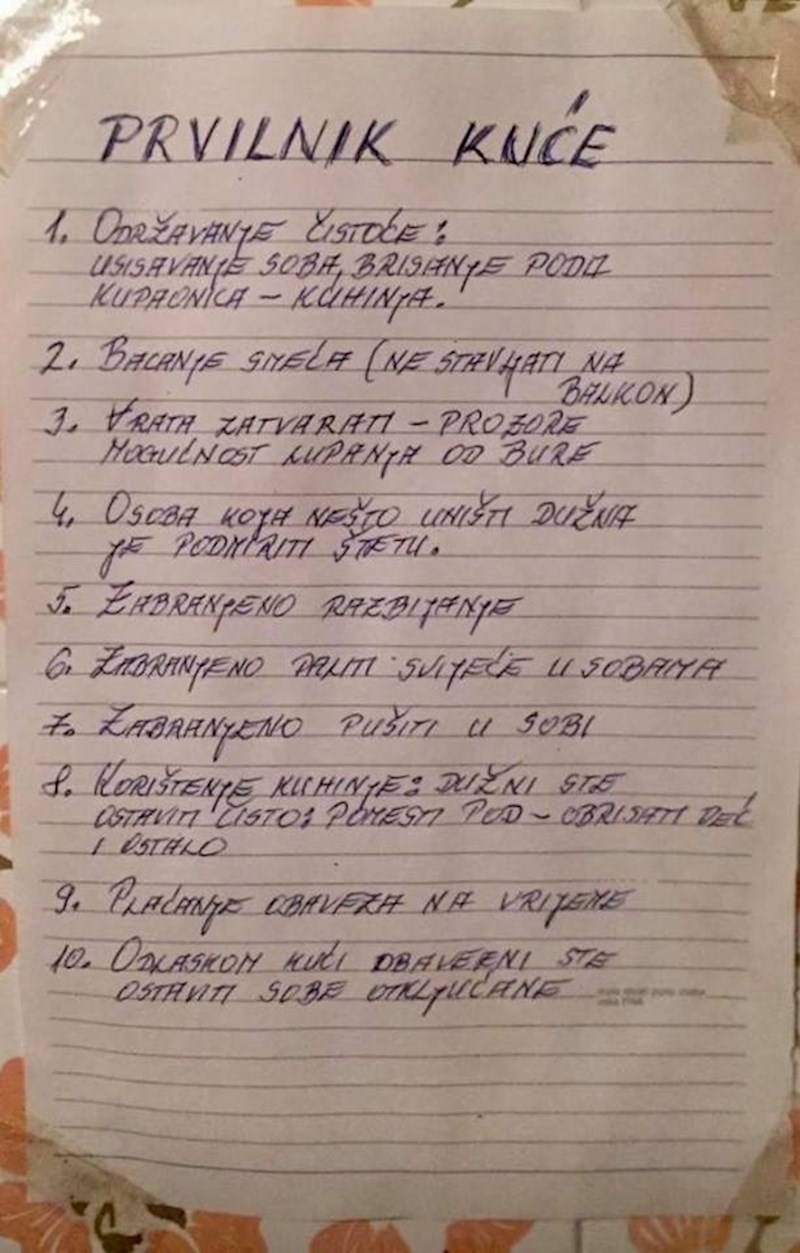 PRVILNIK KUĆE
1. ODRŽAVANJE ČISTOĆE:
USISAVANJE SOBA, BRISANJE PODA
KUPAONICA – KUHINJA.
2. BACANJE SMEĆA (NE STAVLJATI NA
BALKON)
3. VRATA ZATVARATI – PROZORE
MOGUĆNOST LUPANJA OD BURE
4. OSOBA KOJA NEŠTO UNIŠTI DUŽNA
JE PODMIRITI ŠTETU.
5. ZABRANJENO RAZBIJANJE
6. ZABRANJENO PALITI SVIJEĆE U SOBAMA
7. ZABRANJENO PUŠITI U SOBI
8. KORIŠTENJE KUHINJE: DUŽNI STE
OSTAVITI ČISTO: POMESTI POD – OBRISATI DEĆ
I OSTALO
9. PLAĆANJE OBAVEZA NA VRIJEME
10. ODLASKOM KUĆI OBAVEZNI STE
OSTAVITI SOBE OTKLJUČANE